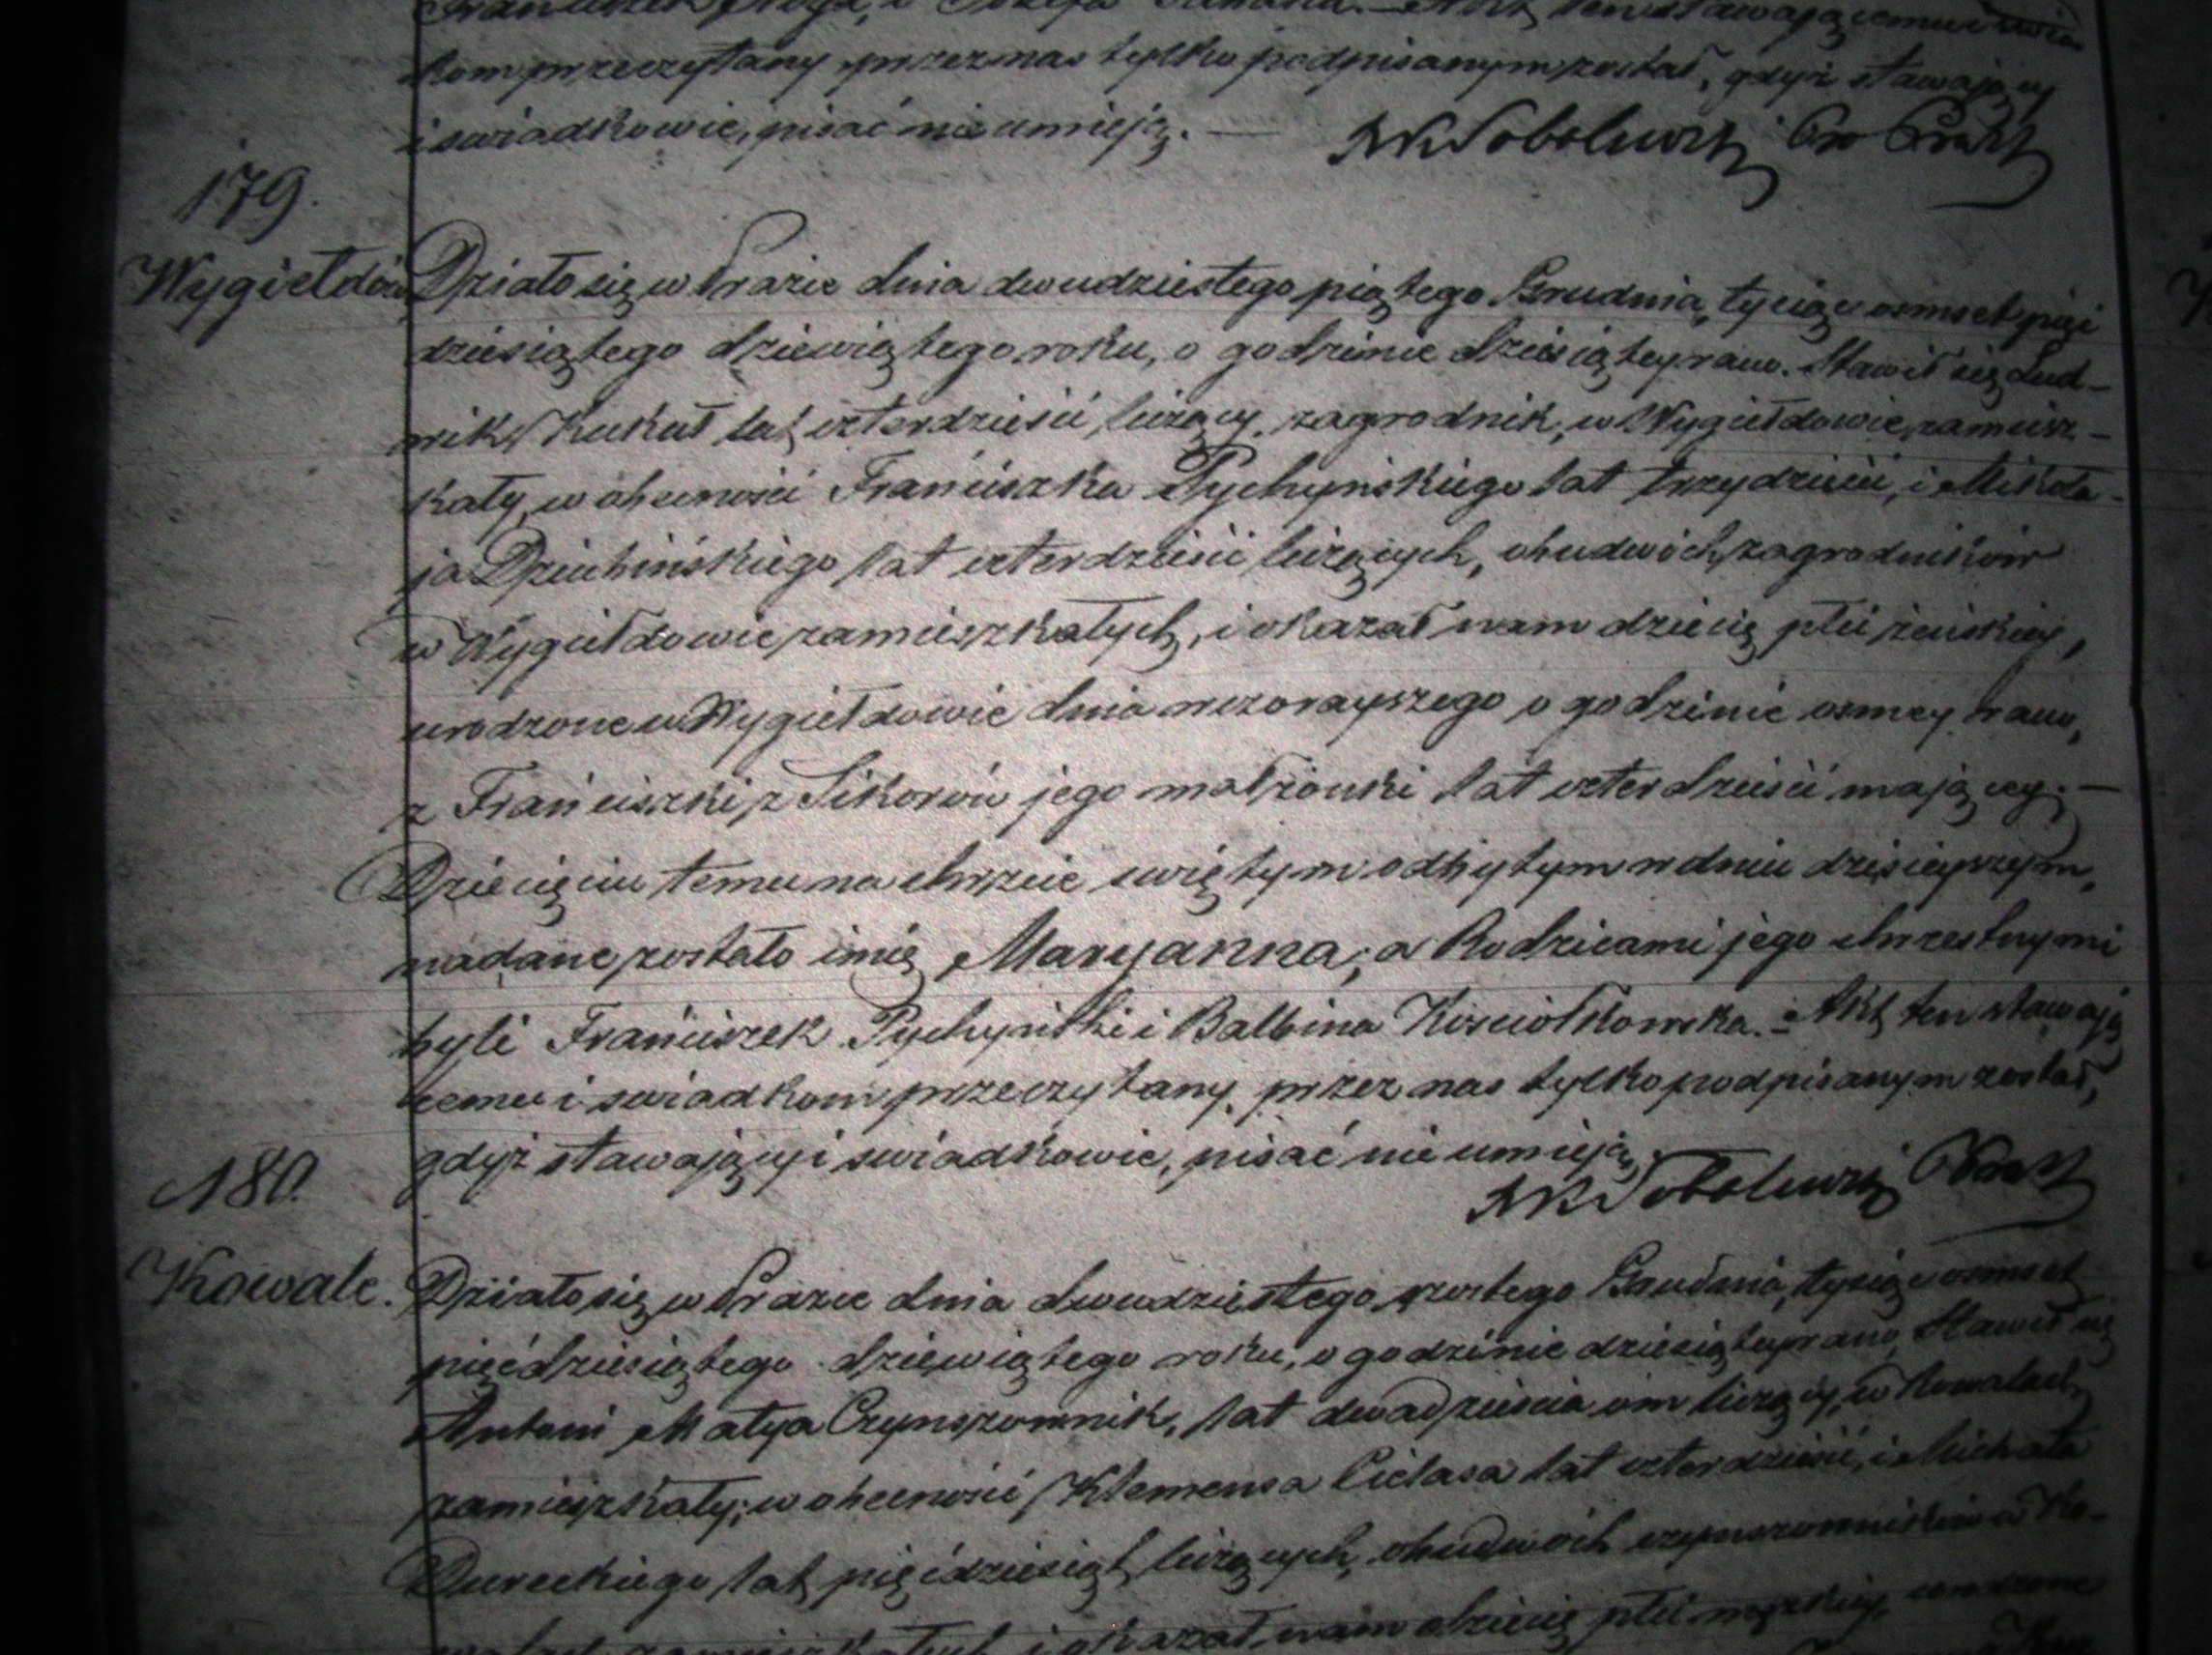 Franciszek i Józefa Akt ten stawającemu i świad
kom przeczytany przez nas tylko podpisanym został, gdyż stawający
i swiadkowie, pisać nie umieją. — Sobolewski
179.
Wygiełdów Działo się w Prazie dnia dwudziestego piątego Grudnia, tysiąc osmset pięć
dziesiątego dziewiątego roku, o godzinie dziesiątey rano. Stawił się Lud-
wik Kukuł lat czterdzieści liczący, zagrodnik, w Wygiełdowie zamiesz-
kały, w obecności Franciszka Pychyńskiego lat trzydzieści, i Mikoła-
ja Dziubińskiego lat czterdzieści liczących, obudwóch zagrodników
w Wygiełdowie zamieszkałych, i okazał nam dziecię płci żeńskiey,
urodzone w Wygiełdowie dnia wczorayszego o godzinie osmey rano,
z Franciszki z Sikorów jego małżonki lat czterdzieści mającey. —
Dziecięciu temu na chrzcie świętym odbytym w dniu dzisieyszym,
nadane zostało imię Maryanna, a Rodzicami jego chrzestnymi
byli Franciszek Pychyński i Balbina Kosciołkowska. — Akt ten stawają
cemu i swiadkom przeczytany, przez nas tylko podpisanym został,
gdyż stawający i swiadkowie, pisać nie umieją.
Sobolewski
180.
Kowale. Działo się w Prazie dnia dwudziestego szostego Grudnia, tysiąc osmset
pięćdziesiątego dziewiątego roku, o godzinie dziesiątey rano, Stawił się
Antoni Małyja Czynszownik, lat dwadzieścia ośm liczący, w Kowalach
zamieszkały; w obecności Klemensa Cielasa lat czterdzieści, i Michała
Dureckiego lat pięćdziesiąt liczących, obudwóch czynszowników w Ko-
walach zamieszkałych i okazał nam dziecię płci męzkiey, urodzone